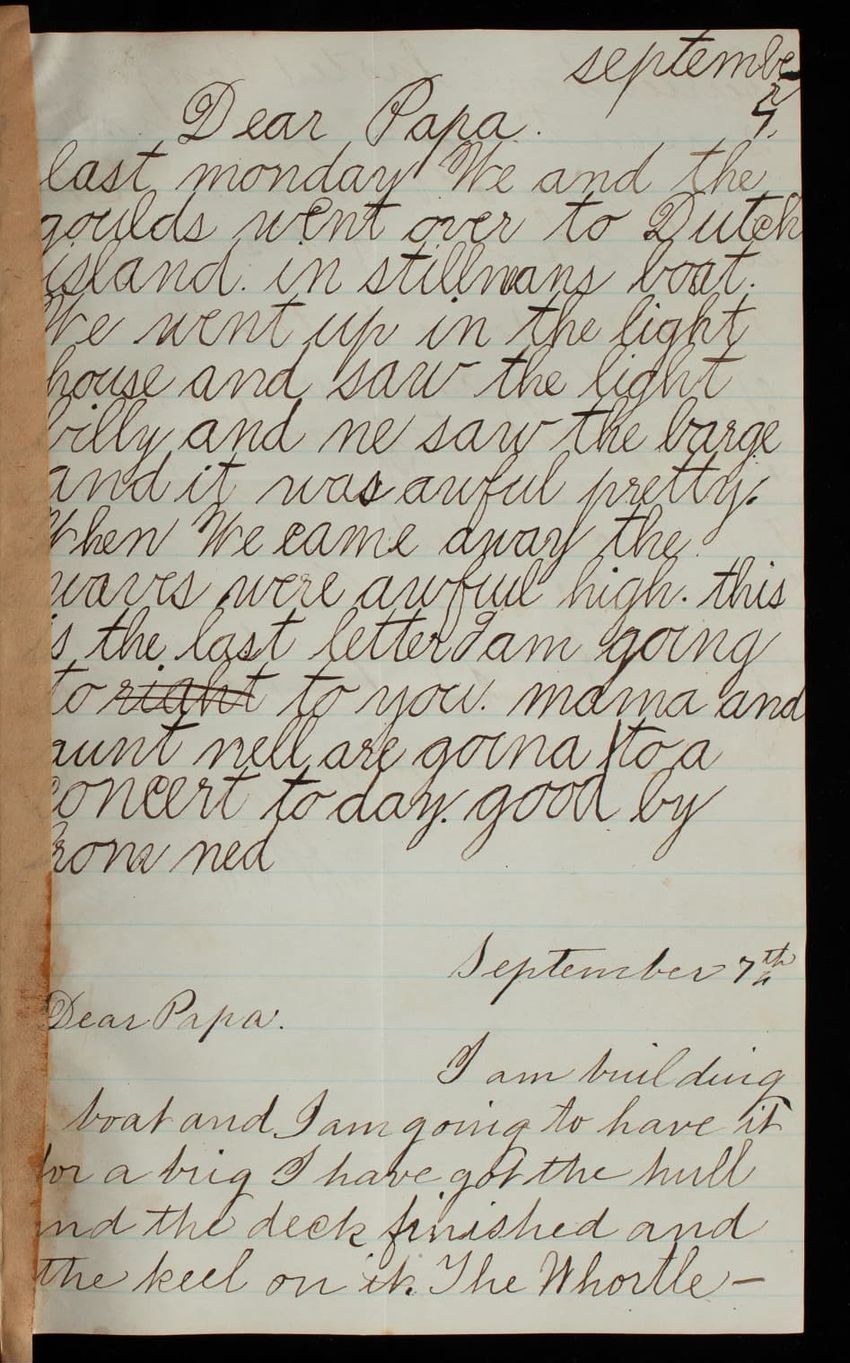 september
7.
Dear Papa.
last monday We and the
goulds went over to Dutch
island. in stillmans boat.
We went up in the light
house and saw the light
billy and me saw the barge
and it was awful pretty.
When We came away the
waves were awful high. this
is the last letter I am going
to right to you. mama and
aunt nell are going to a
concert to day. good by
from ned
September 7th
Dear Papa.
I am building
boat and I am going to have it
for a brig I have got the hull
and the deck finished and
the keel on it. The Whortle-